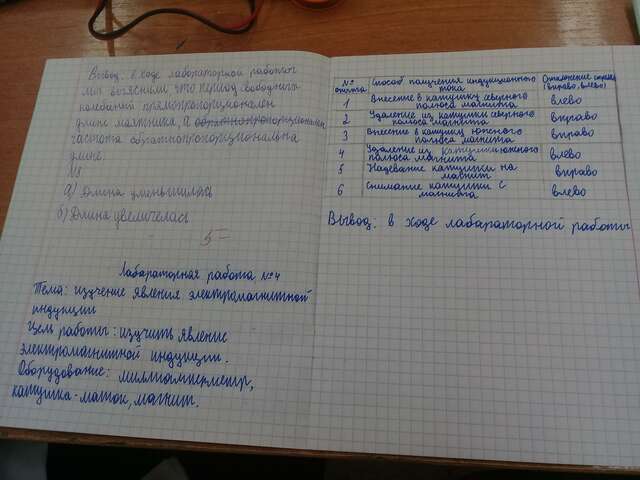 Вывод: в ходе лабараторной работы
мы выяснили, что период свободных
колебаний прямопропорционален
длине маятника, а обратнопропорциональна
частота обратнопропорциональна
длине.
а) Длина уменьшилась
б) Длина увеличелась
5-
Лабараторная работа №4
Тема: изучение явления электромагнитной
индукции
Цель работы: изучить явление
электромагнитной индукции.
Оборудование: миллиамперметр,
катушка-маток, магнит.
№ опыта Способ получения индукционного тока Отклонение стрелки (вправо, влево)
1 Внесение в катушку северного полюса магнита влево
2 Удаление из катушки северного полюса магнита вправо
3 Внесение в катушку южного полюса магнита вправо
4 Удаление из катушки южного полюса магнита влево
5 Надевание катушки на магнит вправо
6 Снимание катушки с магнита влево
Вывод: в ходе лабараторной работы